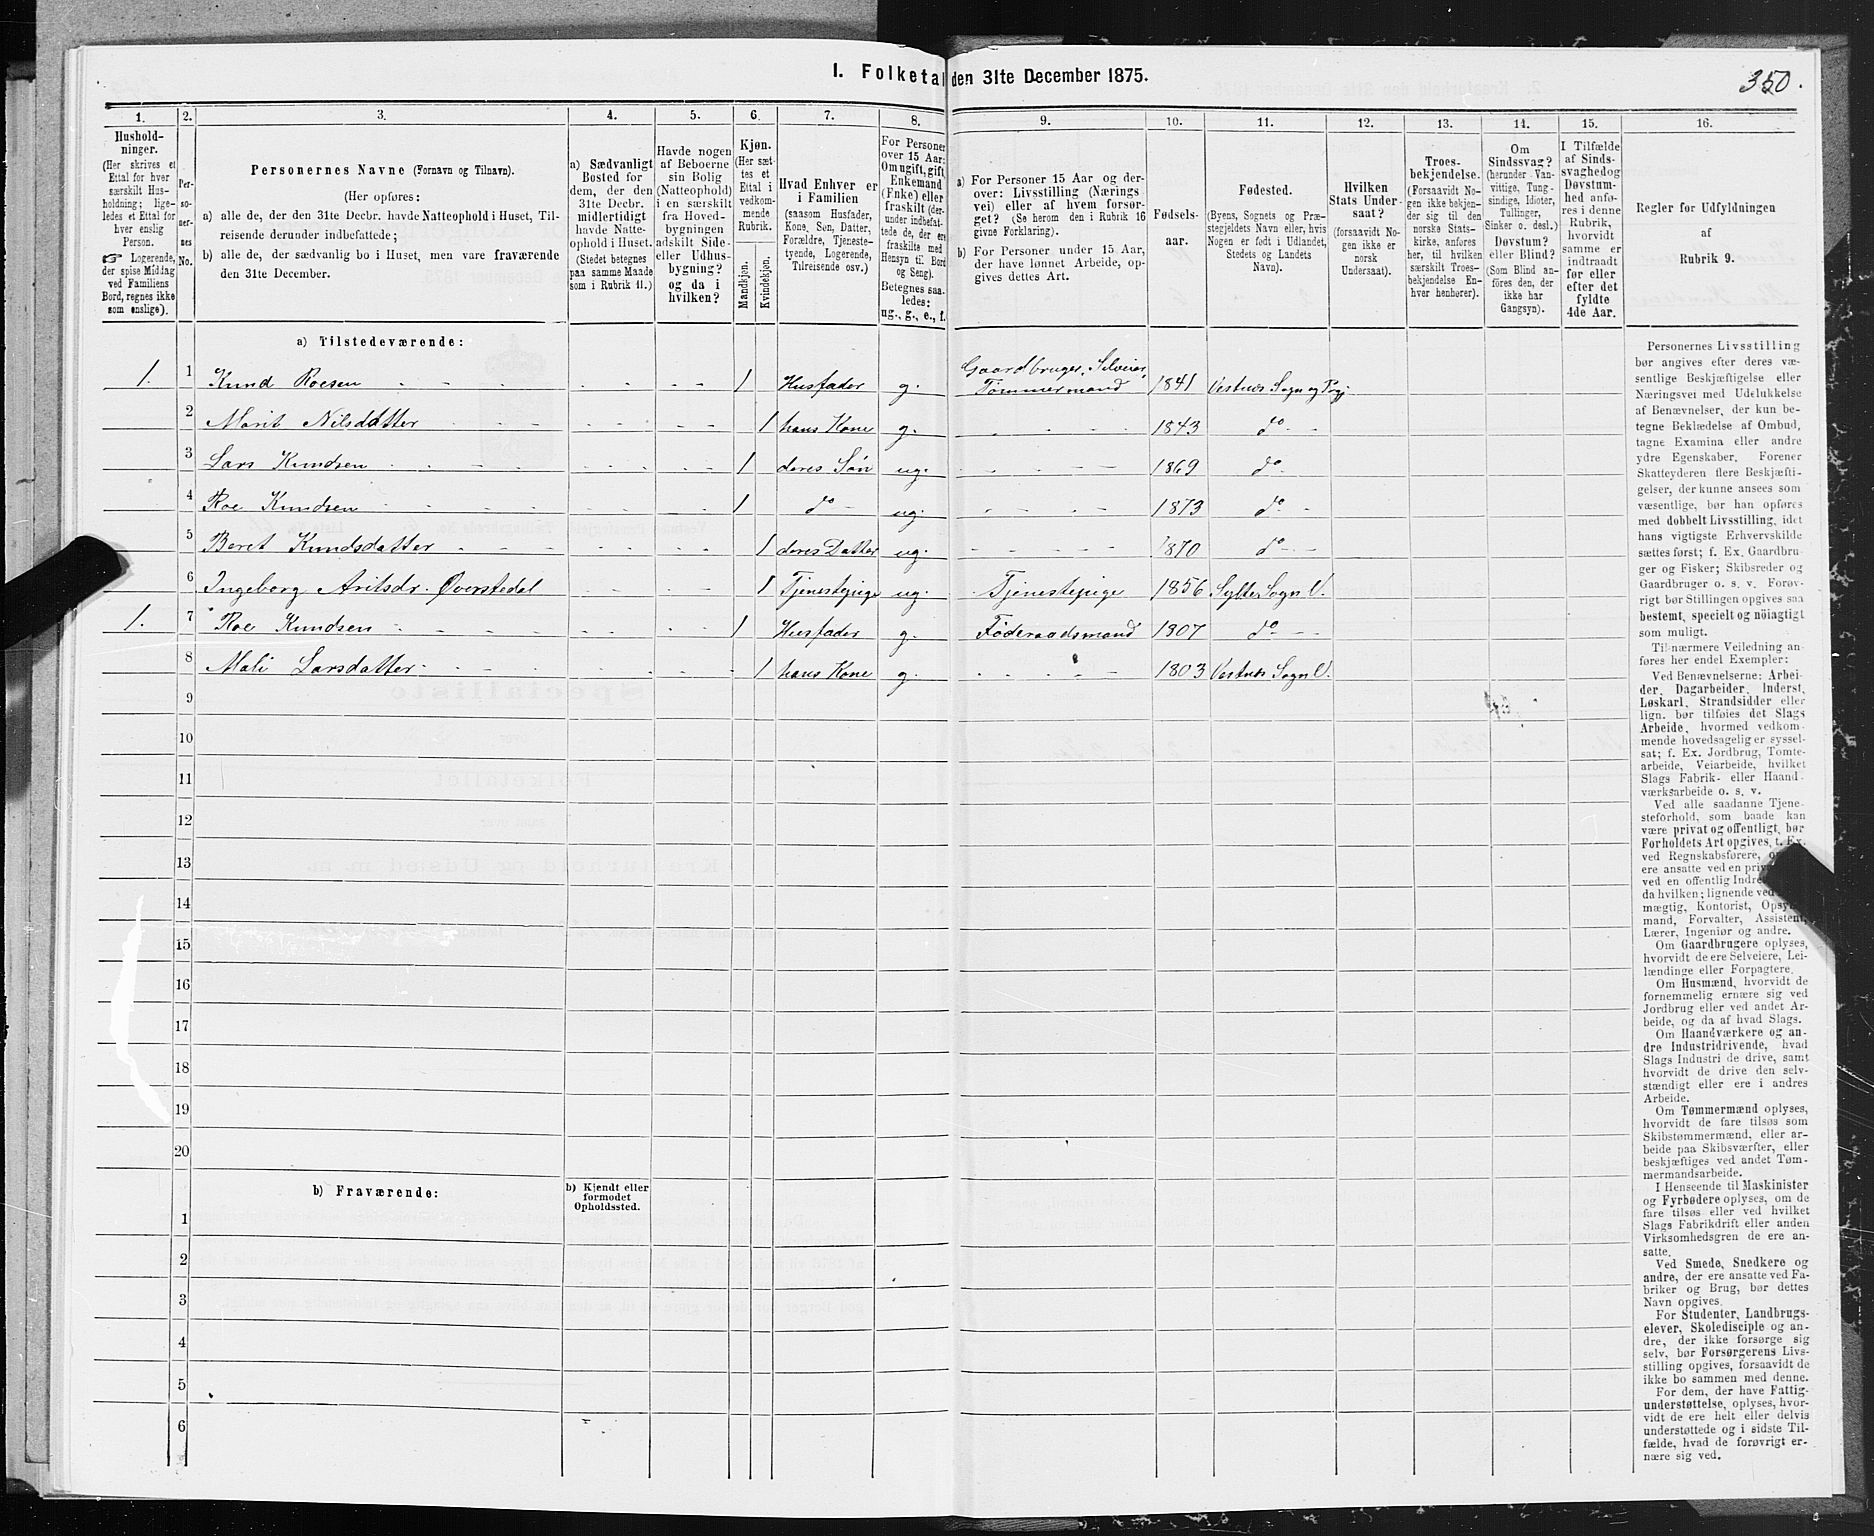 I. Folketal den 31te December 1875.
350.
1.
2.
3.
4.
5.
6.
7.
8.
9.
10.
11.
12.
13.
14.
15.
16.
Hushold-
ninger.
(Her skrives et
Ettal for hver
særskilt Hus-
holdning; lige-
ledes et Ettal for
hver enslig
Person.
☞ Logerende,
der spise Middag
ved Familiens
Bord, regnes ikke
som enslige).
Per-
so-
ner-
nes
No.
Personernes Navne (Fornavn og Tilnavn).
(Her opføres:
a) alle de, der den 31te Decbr. havde Natteophold i Huset, Til-
reisende derunder indbefattede;
b) alle de, der sædvanlig bo i Huset, men vare fraværende
den 31te December.
a) Sædvanligt
Bosted for
dem, der den
31te Decbr.
midlertidigt
havde Natte-
ophold i Huset.
(Stedet betegnes
paa samme Maade
som i Rubrik 11.)
Havde nogen
af Beboerne
sin Bolig
(Natteophold)
i en særskilt
fra Hoved-
bygningen
adskilt Side-
eller Udhus-
bygning?
og da i
hvilken?
Kjøn.
(Her sæt-
tes et
Ettal i
vedkom-
mende
Rubrik.
Mandkjøn.
Kvindekjøn.
Hvad Enhver er
i Familien
(saasom Husfader,
Kone, Søn, Datter,
Forældre, Tjeneste-
tyende, Logerende,
Tilreisende osv.)
For Personer
over 15 Aar:
Om ugift, gift,
Enkemand
(Enke) eller
fraskilt (der-
under indbefat-
tede de, der ere
fraskilte med
Hensyn til Bord
og Seng).
Betegnes saa-
ledes:
ug., g., e., f.
a) For Personer 15 Aar og der-
over: Livsstilling (Nærings
vei) eller af hvem forsør-
get? (Se herom den i Rubrik 16
givne Forklaring).
b) For Personer under 15 Aar,
der have lønnet Arbeide, op-
gives dettes Art.
Fødsels-
aar.
Fødested.
(Byens, Sognets og Præ-
stegjeldets Navn eller, hvis
Nogen er født i Udlandet,
Stedets og Landets
Navn).
Hvilken
Stats Under-
saat?
(forsaavidt No-
gen ikke er
norsk
Undersaat).
Troes-
bekjendelse.
(Forsaavidt No-
gen ikke bekjen-
der sig til den
norske Stats-
kirke, anføres
her, til hvilken
særskilt Troes-
bekjendelse En-
hver henhører).
Om
Sindssvag?
(herunder Van-
vittige, Tung-
sindige, Idioter,
Tullinger,
Sinker o. desl.)
Døvstum?
eller Blind?
(Som Blind an-
føres den, der
ikke har
Gangsyn).
I Tilfælde
af Sinds-
svaghed og
Døvstum-
hed anfø-
res i denne
Rubrik,
hvorvidt
samme er
indtraadt
før eller
efter det
fyldte
4de Aar.
Regler for Udfyldningen
af
Rubrik 9.
a) Tilstedeværende:
1. 1 Knud Roesen 1 Husfader g. Gaardbruger, Selveier, Tømmermand 1841 Vestnes Sogn og Prgj
2 Marit Nilsdatter 1 hans Kone g. 1843 do
3 Lars Knudsen 1 deres Søn ug. 1869 do
4 Roe Knudsen 1 do ug. 1873 do
5 Beret Knudsdatter 1 deres Datter ug. 1870 do
6 Ingeborg Aritsdr. Øverstedal 1 Tjenestepige ug. Tjenestepige 1856 Sylte Sogn V.
1. 7 Roe Knudsen 1 Husfader g. Föderaadsmand 1807 do
8 Mali Larsdatter 1 hans Kone g. 1803 Vestnes Sogn V.
9
10
11
12
13
14
15
16
17
18
19
20
b) Fraværende:
b) Kjendt eller
formodet
Opholdssted.
1
2
3
4
5
6
Personernes Livsstilling
bør angives efter deres væ-
sentlige Beskjæftigelse eller
Næringsvei med Udelukkelse
af Benævnelser, der kun be-
tegne Beklædelse af Ombud,
tagne Examina eller andre
ydre Egenskaber. Forener
Skatteyderen flere Beskjæfti-
gelser, der kunne ansees som
væsentlige, bør han opføres
med dobbelt Livsstilling, idet
hans vigtigste Erhvervskilde
sættes først; f. Ex. Gaardbru-
ger og Fisker; Skibsreder og
Gaardbruger o. s. v. Forøv-
rigt bør Stillingen opgives saa
bestemt, specielt og nöiagtigt
som muligt.
Til nærmere Veiledning an-
føres her endel Exempler:
Ved Benævnelserne: Arbei-
der, Dagarbeider, Inderst,
Løskarl, Strandsidder eller
lign. bør tilføies det Slags
Arbeide, hvormed vedkom-
mende hovedsagelig er syssel-
sat; f. Ex. Jordbrug, Tomte-
arbeide, Veiarbeide, hvilket
Slags Fabrik- eller Haand-
værksarbeide o. s. v.
Ved alle saadanne Tjene-
steforhold, som baade kan
være privat og offentligt, bør
Forholdets Art opgives, t. Ex.
ved Regnskabsførere,
ere ansatte ved en
ved en offentlig
da hvilken; lignende ved
mægtig, Kontorist,
mand, Forvalter, Assistent,
Lærer, Ingeniør og andre.
Om Gaardbrugere oplyses,
hvorvidt de ere Selveiere, Lei-
lændinge eller Forpagtere.
Om Husmænd, hvorvidt de
fornemmelig ernære sig ved
Jordbrug eller ved andet Ar-
beide, og da af hvad Slags.
Om Haandværkere og an-
dre Industridrivende, hvad
Slags Industri de drive, samt
hvorvidt de drive den selv-
stændigt eller ere i andres
Arbeide.
Om Tømmermænd oplyses,
hvorvidt de fare tilsøs som
Skibstømmermænd, eller ar-
beide paa Skibsværfter, eller
beskjæftiges ved andet Tøm-
mermandsarbeide.
I Henseende til Maskinister
og Fyrbødere oplyses, om de
fare tilsøs eller ved hvilket
Slags Fabrikdrift eller anden
Virksomhedsgren de ere an-
satte.
Ved Smede, Snedkere og
andre, der ere ansatte ved Fa-
briker og Brug, bør dettes
Navn opgives.
For Studenter, Landbrugs-
elever, Skoledisciple og an-
dre, der ikke forsørge sig
selv, bør Forsørgerens Livs-
stilling opgives, forsaavidt de
ikke bo sammen med denne.
For dem, der have Fattig-
understøttelse, oplyses, hvor-
vidt de ere helt eller delvis
understøttede og i sidste Til-
fælde, hvad de forøvrigt er-
nære sig ved.